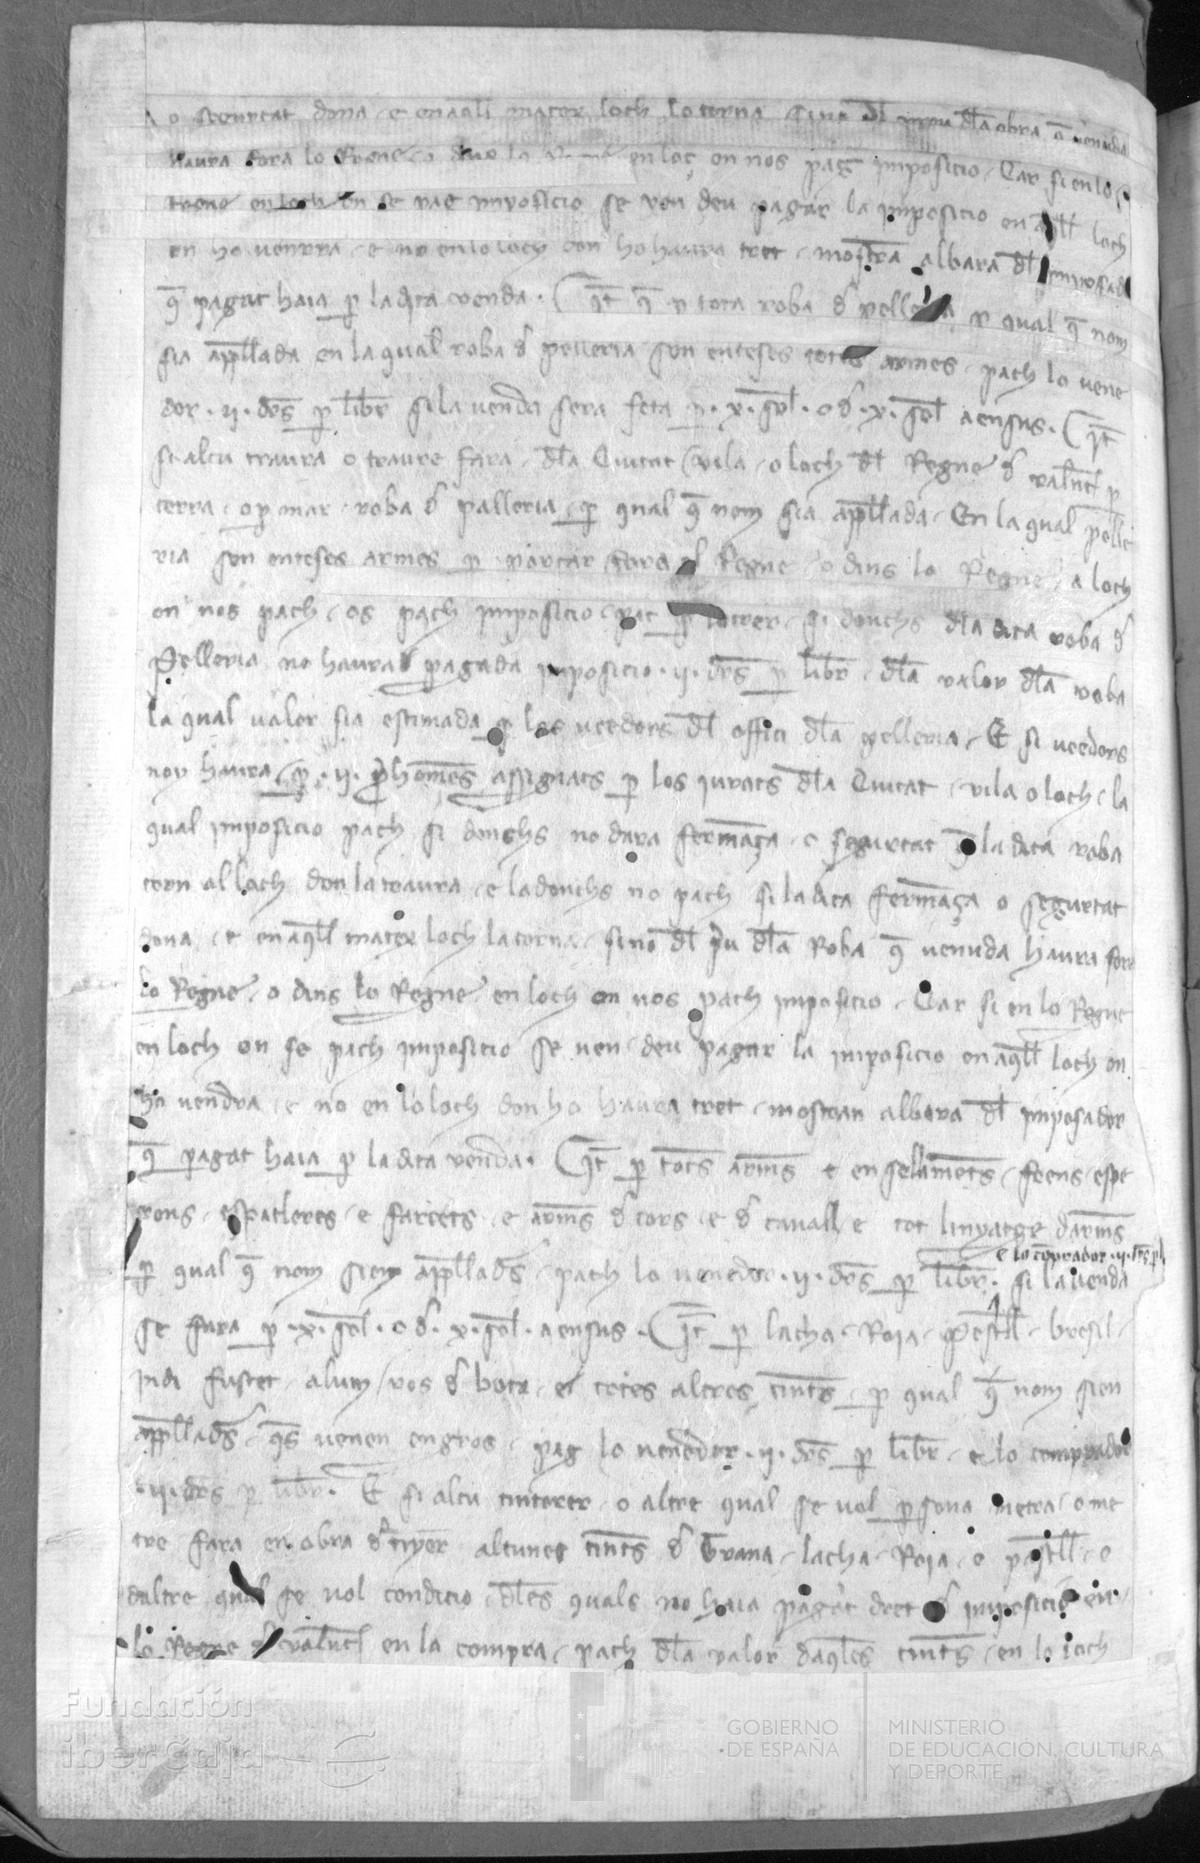 o segurtat dona e en aq̄ll mateix loch lo torna Sino d̄l preu d̄la obra q̄ venuda
haura fora lo Regne o dins lo en loc on nos pag imposicio Car si en lo
Regne en loch on se pag imposicio se ven deu pagar la imposicio en aq̄ll loch
on ho vendra e no en lo loch don ho haura tret mostran albara d̄l imposador
q̄ pagat haia p̱ la dita venda. It̄ q̄ p̱ tota roba d̄ pelleria p̱ qual q̄ nom
sia apl̄lada en la qual roba d̄ pelleria son enteses totes armes pach lo vene
dor .ii. drs̄ p̱ libr̄ si la venda sera feta p̱ .x. sol̄ . o d̄ .x. sol̄ a ensus. It̄
si alcu traura o traure fara d̄la Ciutat vila o loch d̄l Regne d̄ valn̄c p̱
terra o p̱ mar roba d̄ palleria p̱ qual q̄ nom sia apl̄lada En la qual pelle
ria son enteses armes p̱ portar fora d̄l Regne o dins lo Regne a loch
on nos pach os pach imposicio pac p̱ lo trer si donchs d̄la dita roba d̄
Pelleria no haura pagada imposicio .ii. drs̄ p̱ libr̄ d̄la valor d̄la roba
la qual valor sia estimada p̱ los veedors d̄l offici d̄la pelleria E si veedors
noy haura p̱ .ii. p̄homēs assignats p̱ los iurats d̄la Ciutat vila o loch la
qual imposicio pach si donchs no dara fermāça o segurtat q̄ la dita roba
torn al loch don la traura e ladonchs no pach si la dita fermāça o segurtat
dona e en aq̄ll mateix loch la torna sino d̄l p̄u d̄la Roba q̄ venuda haura fora
lo Regne o dins lo Regne en loch on nos pach imposicio Car si en lo Regne
en loch on se pach imposicio se ven deu pagar la imposicio en aq̄ll loch on
ho vendra e no en lo loch don ho haura tret mostran albara d̄l imposador
q̄ pagat haia p̱ la dita venda. It̄ p̱ tots arm̄s e ensellamēts frens espe
rons espatleres e farcets e arm̄s d̄ cors e d̄ cavall e tot linyatge darm̄s
e lo cōprador .ii. drs̄ p̱ l
p̱ qual q̄ nom sien apl̄lads̄ pach lo venedor .ii. drs̄ p̱ libr̄. si la venda
se fara p̱ .x. sol̄ . o d̄ .x. sol̄ . a ensus. It̄ p̱ lacha Roia Past̄ll bresil
Indi fustet alum ros d̄ bota e totes altres tints̄ p̱ qual q̄ nom sien
apl̄lads̄ q̄s venen engros pag lo venedor .ii. drs̄ p̱ libr̄ e lo comprador
.ii. drs̄ p̱ libr̄. E si alcu tintorer o altre qual se vol p̱sona metra o me
tre fara en obra d̄ tiyer alcunes tints̄ d̄ Grana lacha Roia e past̄ll e
daltre qual se vol condicio d̄les quals no haia pagat dret d̄ imposicio en
lo Regne d̄ valn̄c en la compra pach d̄la valor daq̄les tints̄ en lo loch